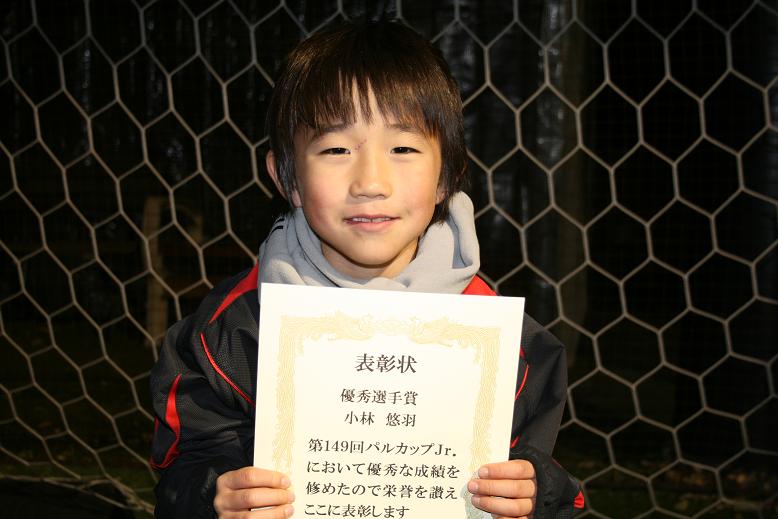 表彰状
優秀選手賞
小林 悠羽
第149回パルカップJr.
において優秀な成績を
修めたので栄誉を讃え
ここに表彰します